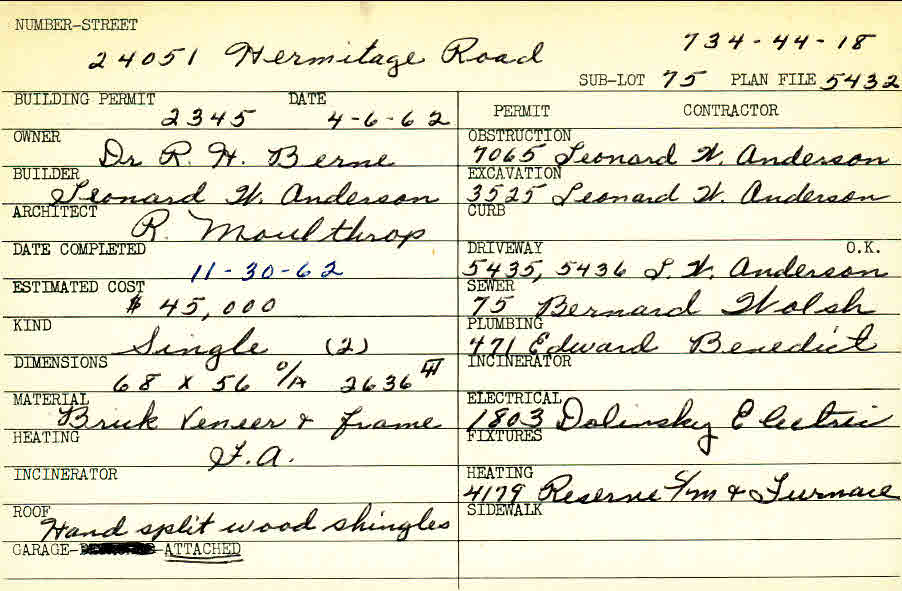 NUMBER-STREET
24051 Hermitage Road 734-44-18
SUB-LOT 75 PLAN FILE 5432
BUILDING PERMIT DATE
2345 4-6-62
OWNER
Dr R. H. Berne
BUILDER
Leonard W. Anderson
ARCHITECT
R. Moulthrop
DATE COMPLETED
11-30-62
ESTIMATED COST
$ 45,000
KIND
Single (2)
DIMENSIONS
68 x 56 O/A 2636
MATERIAL
Brick Veneer & frame
HEATING
F.A.
INCINERATOR
ROOF
Hand split wood shingles
GARAGE- -ATTACHED
PERMIT CONTRACTOR
OBSTRUCTION
7065 Leonard W. Anderson
EXCAVATION
3525 Leonard W. Anderson
CURB
DRIVEWAY O.K.
5435, 5436 L. W. Anderson
SEWER
75 Bernard Wolsh
PLUMBING
471 Edward Benedict
INCINERATOR
ELECTRICAL
1803 Dolinsky Electric
FIXTURES
HEATING
4179 Reserve S/m & Furnace
SIDEWALK